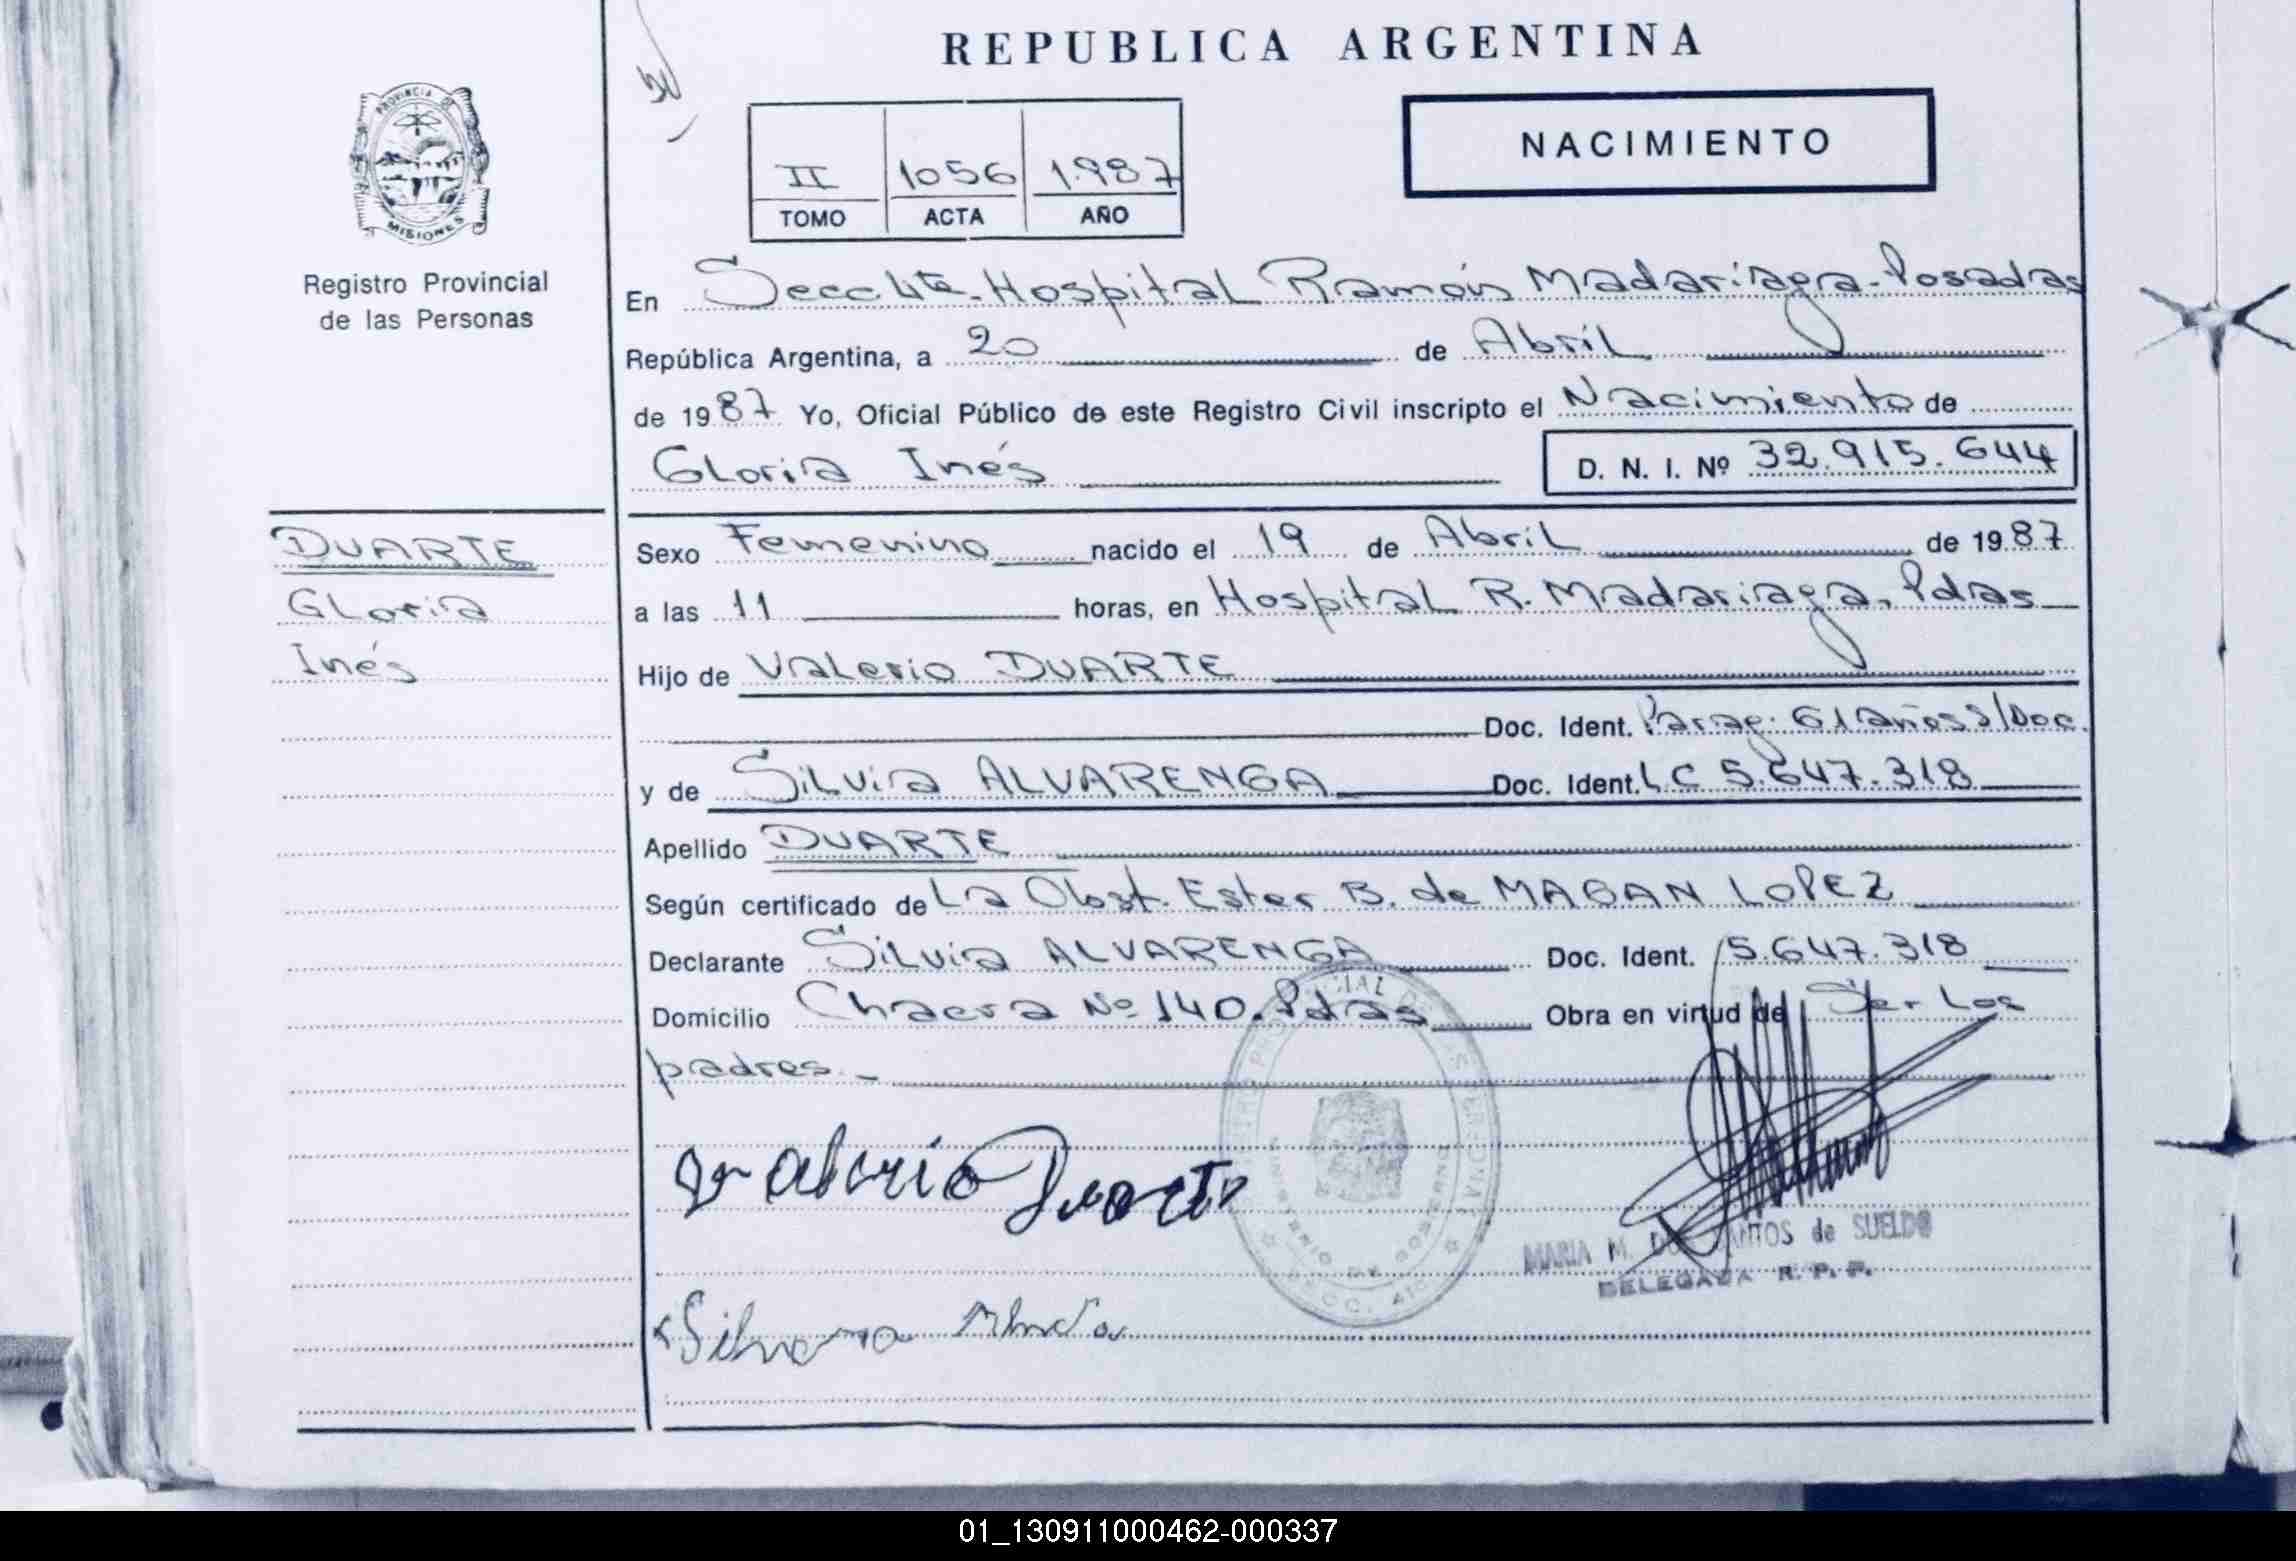 REPUBLICA ARGENTINA
PROVINCIA DE
MISIONES
Registro Provincial
de las Personas
NACIMIENTO
II 1056 1.987
TOMO ACTA AÑO
En Secc 4ta. Hospital Ramón Madariaga - Posadas
República Argentina, a 20 de Abril
de 1987 Yo, Oficial Público de este Registro Civil inscripto el Nacimiento de
Gloria Inés D. N. I. Nº 32.915.644
DUARTE
Gloria
Inés
Sexo Femenino nacido el 19 de Abril de 1987
a las 11 horas, en Hospital R. Madariaga, Pdas
Hijo de Valerio DUARTE
Doc. Ident. Parag. 61 años s/Doc.
y de Silvia ALVARENGA Doc. Ident. LC 5.647.318
Apellido DUARTE
Según certificado de La Obst. Ester B. de MAGAN LOPEZ
Declarante Silvia ALVARENGA Doc. Ident. 5.647.318
Domicilio Chacra Nº 140. Pdas Obra en virtud de Ser Los
padres.-
Valerio Duarte
MARIA M. DOS SANTOS de SUELDO
DELEGADA R. P. P.
01_130911000462-000337